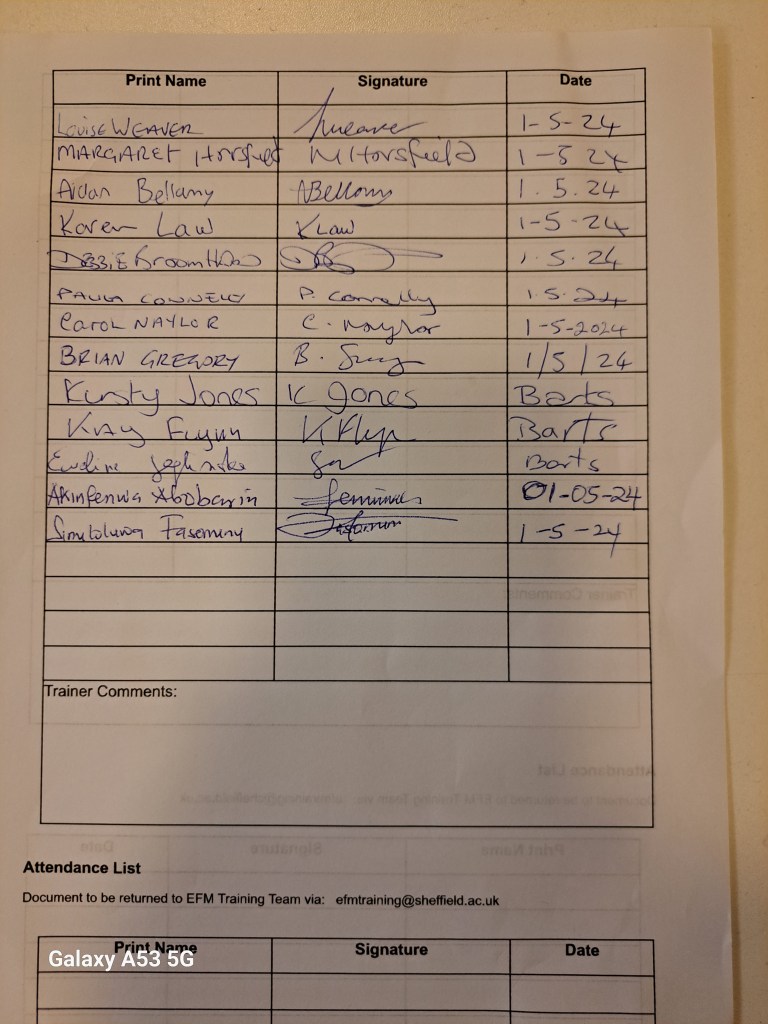 Print Name Signature Date
Louise WEAVER 1-5-24
MARGARET Horsfield M Horsfield 1-5 24
Aidan Bellamy ABellamy 1.5.24
Karen Law K Law 1-5-24
DEBBIE 1.5.24
PAULA CONNELLY P. Connelly 1.5.24
Carol NAYLOR C. Naylor 1-5-2024
BRIAN GREGORY B. 1/5/24
Kirsty Jones K Jones Barts
Kay Flynn K Flynn Barts
Ewelina Barts
Akinfenwa 01-05-24
Simitoluwa 1-5-24
Trainer Comments:
Attendance List
Document to be returned to EFM Training Team via: efmtraining@sheffield.ac.uk
Print Name Signature Date
Galaxy A53 5G